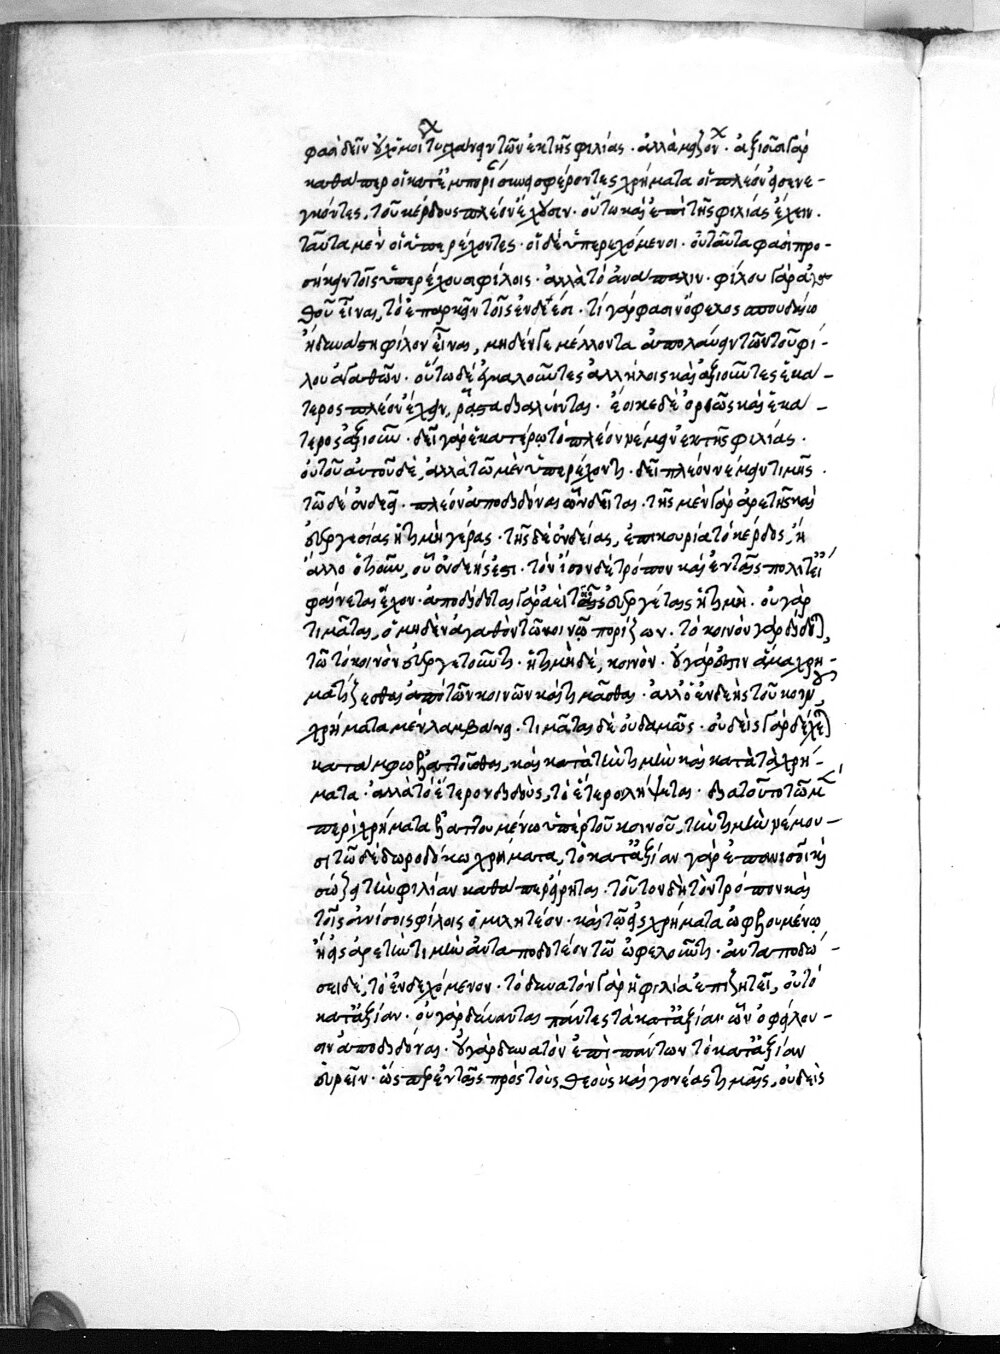 φασὶ δεῖν οὐχ ὅμοια τυγχάνειν τῶν ἐκ τῆς φιλίας. ἀλλὰ μειζόνων. ἀξιοῦσι γὰρ
καθάπερ οἱ κατ' ἐμπορίαν εἰσφέροντες χρήματα οἱ πλέον εἰσενε-
γκόντες, τοῦ κέρδους πλέον ἔχουσιν. οὕτω καὶ ἐπὶ τῆς φιλίας ἔχειν.
ταῦτα μὲν οἱ ὑπερέχοντες. οἱ δὲ ὑπερεχόμενοι. οὐ ταῦτα φασὶ προ-
σήκειν τοῖς ὑπερέχουσι φίλοις. ἀλλὰ τὸ ἀνάπαλιν. φίλου γὰρ ἀγα-
θοῦ εἶναι, τὸ ἐπαρκεῖν τοῖς ἐνδεέσι. τί γάρ φασιν ὄφελος σπουδαίῳ
ἢ δυνάστῃ φίλον εἶναι, μηδέν γε μέλλοντα ἀπολαύειν τῶν τοῦ φί-
λου ἀγαθῶν. οὕτω δὲ ἐγκαλοῦντες ἀλλήλοις καὶ ἀξιοῦντες ἑκά-
τερος πλέον ἔχειν, ῥᾷστα διαλύονται. ἔοικε δὲ ὀρθῶς καὶ ἑκά-
τερος ἀξιοῦν. δεῖ γὰρ ἑκατέρῳ τὸ πλέον νέμειν ἐκ τῆς φιλίας.
οὐ τοῦ αὐτοῦ δὲ, ἀλλὰ τῷ μὲν ὑπερέχοντι. δεῖ πλέον νέμειν τιμῆς.
τῷ δὲ ἐνδεεῖ. πλέον ἀποδιδόναι ὧν δεῖται. τῆς μὲν γὰρ ἀρετῆς καὶ
εὐεργεσίας ἡ τιμὴ γέρας. τῆς δὲ ἐνδείας, ἐπικουρία τὸ κέρδος, ἢ
ἄλλο ὁτιοῦν, οὗ ἐνδεής ἐστι. τὸν ἴσον δὲ τρόπον καὶ ἐν ταῖς πολιτεί
φαίνεται ἔχον. ἀποδίδοται γὰρ ἀεὶ τοῖς εὐεργέταις ἡ τιμὴ. οὐ γὰρ
τιμᾶται, ὁ μηδὲν ἀγαθὸν τῷ κοινῷ πορίζων. τὸ κοινὸν γὰρ δίδοται,
τῷ τὸ κοινὸν εὐεργετοῦντι. ἡ τιμὴ δέ, κοινόν. οὐ γάρ ἐστιν ἅμα χρη-
ματίζεσθαι ἀπὸ τῶν κοινῶν καὶ τιμᾶσθαι. ἀλλ' ὁ ἐνδεὴς τοῦ κοινοῦ
χρήματα μὲν λαμβάνει. τιμᾶται δὲ οὐδαμῶς. οὐδεὶς γὰρ δέχεται
κατ' ἄμφω ἐλαττοῦσθαι, καὶ κατὰ τὴν τιμὴν καὶ κατὰ τὰ χρή-
ματα. ἀλλὰ τὸ ἕτερον διδοὺς, τὸ ἕτερον λήψεται. διατοῦτο τῷ μὲν
περὶ χρήματα ἐλαττουμένῳ ὑπὲρ τοῦ κοινοῦ, τὴν τιμὴν νέμου-
σι τῷ δὲ δωροδόκῳ χρήματα, τὸ κατ' ἀξίαν γὰρ ἐπανισοῖ καὶ
σώζει τὴν φιλίαν καθάπερ εἴρηται. τοῦτον δὴ τὸν τρόπον καὶ
τοῖς ἀνίσοις φίλοις ὁμιλητέον. καὶ τῷ εἰς χρήματα ὠφελουμένῳ
ἢ εἰς ἀρετὴν τιμὴν ἀνταποδοτέον τῷ ὠφελοῦντι. ἀνταποδώ-
σει δὲ, τὸ ἐνδεχόμενον. τὸ δυνατὸν γὰρ ἡ φιλία ἐπιζητεῖ, οὐ τὸ
κατ' ἀξίαν. οὐ γὰρ δύνανται πάντες τὰ κατ' ἀξίαν ὧν ὀφείλου-
σιν ἀποδιδόναι. οὐ γὰρ δυνατὸν ἐπὶ πάντων τὸ κατ' ἀξίαν
εὑρεῖν. ὥσπερ ἐν ταῖς πρὸς τοὺς θεοὺς καὶ γονέας τιμαῖς, οὐδεὶς